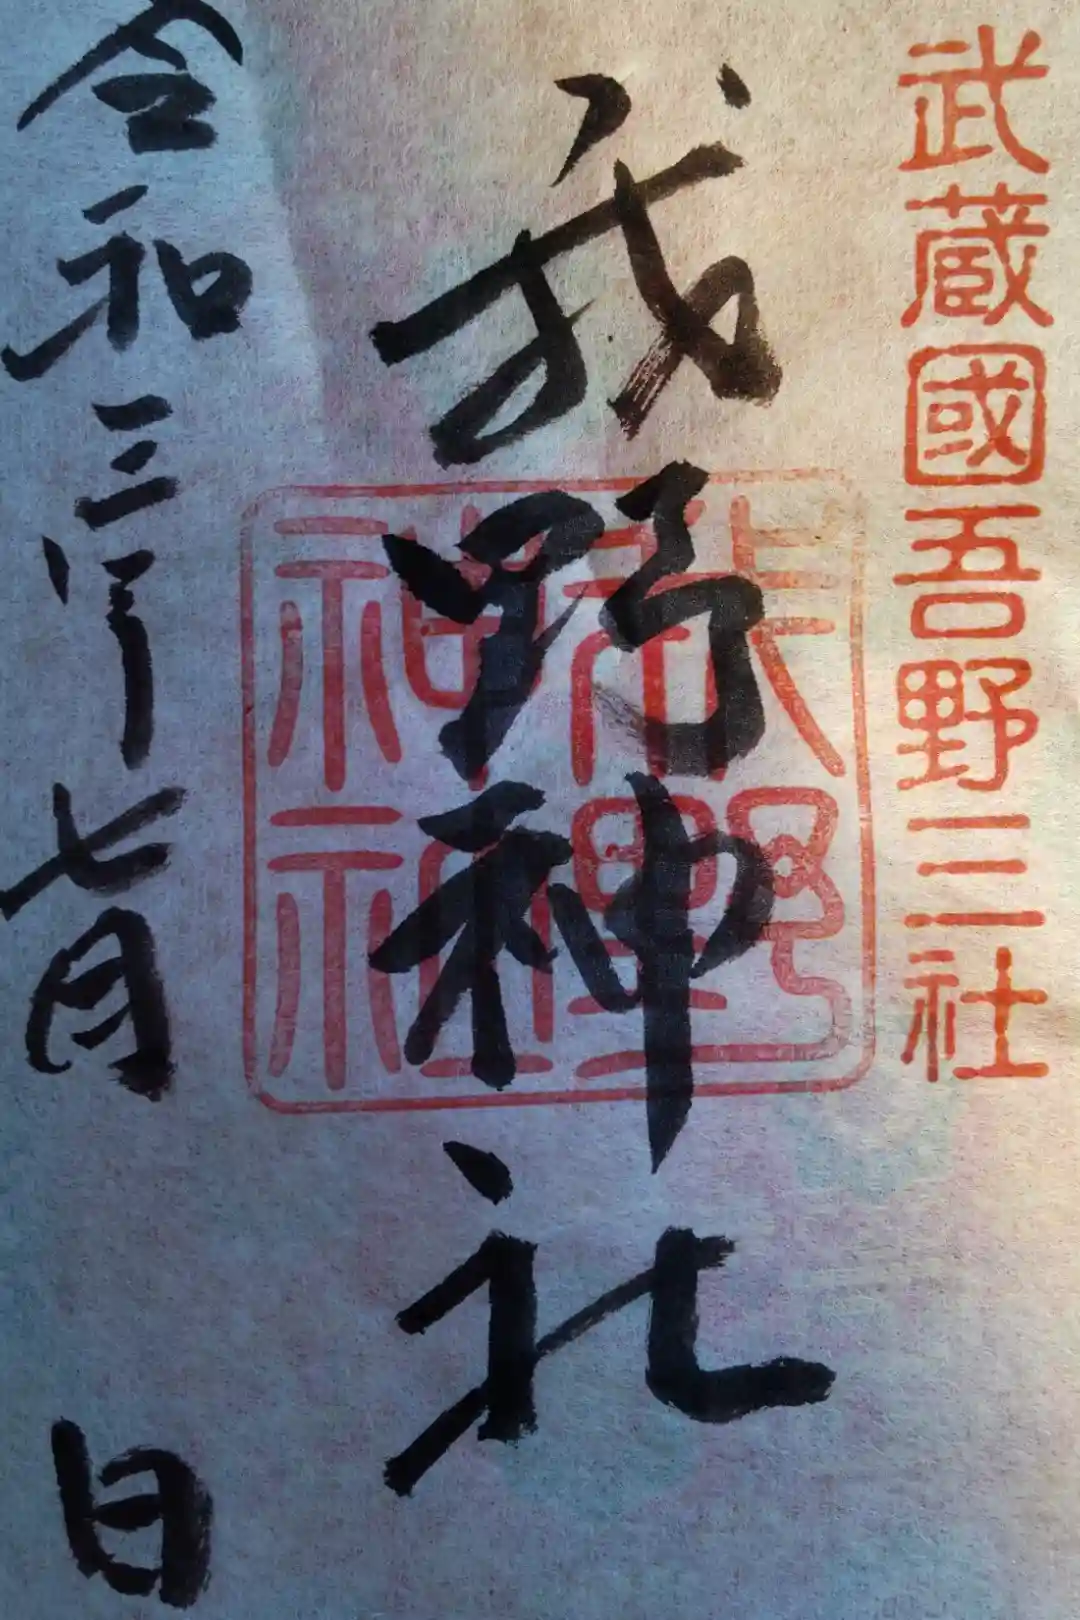 武蔵國吾野三社
我野神社
我野神社
令和三年七月 日